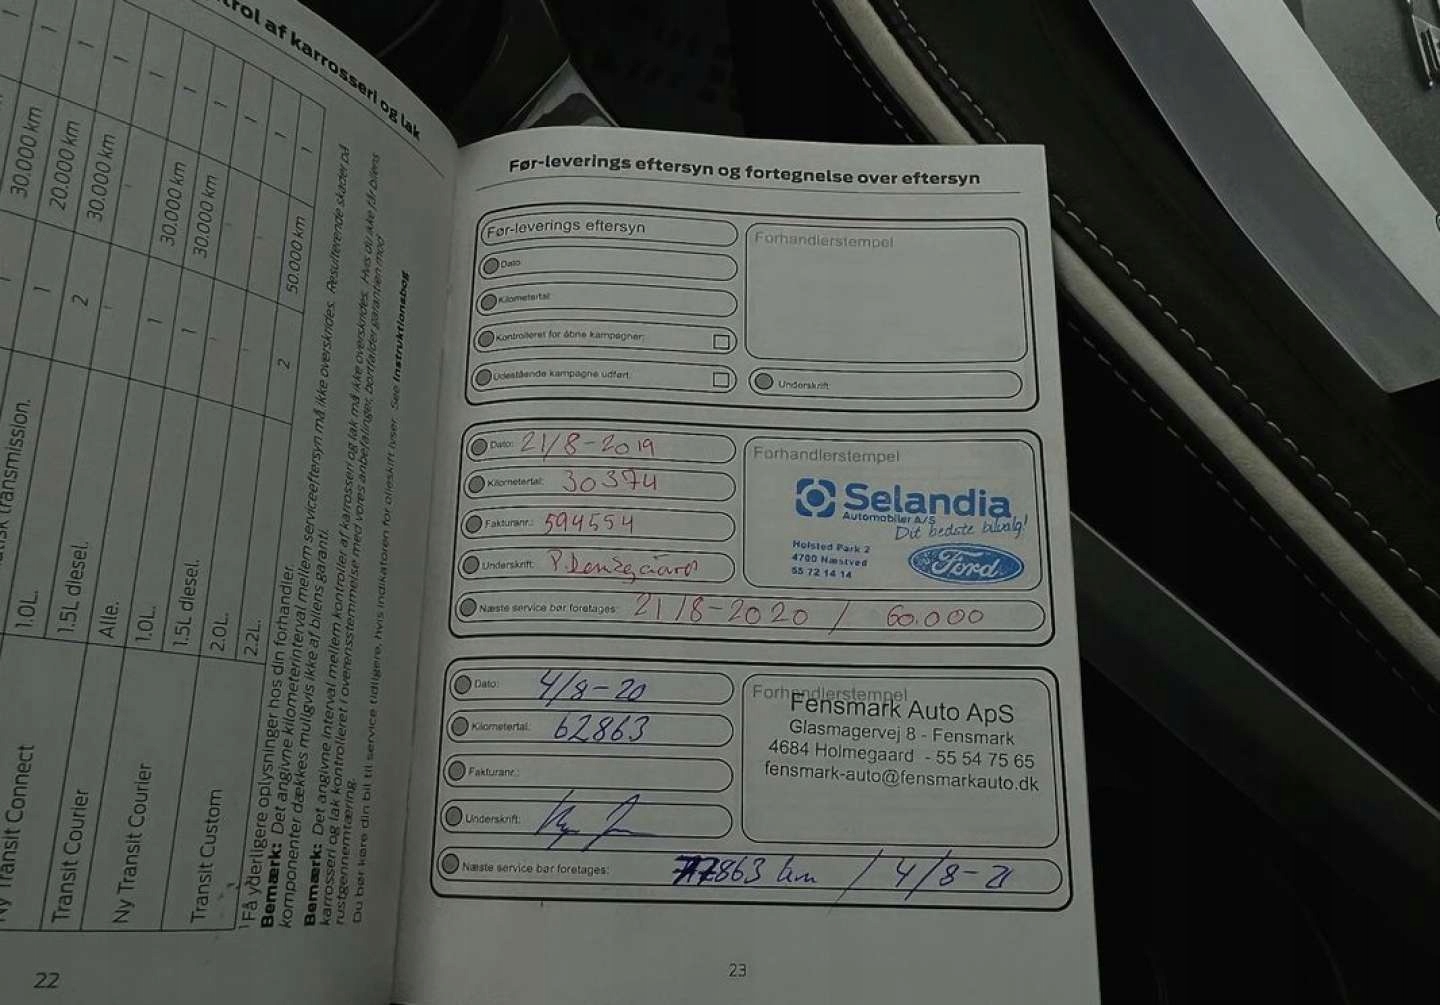 trol af karrosseri og lak
30.000 km
1
20.000 km
1
30.000 km
1
1
30.000 km
1
30.000 km
1
1
50.000 km
1
1
2
1
1
2
transmission.
1.0L.
1.5L diesel.
Alle.
1.0L.
1.5L diesel.
2.0L.
2.2L.
Ny Transit Connect
Transit Courier
Ny Transit Courier
Transit Custom
1 Få yderligere oplysninger hos din forhandler.
Bemærk: Det angivne kilometerinterval mellem serviceeftersyn må ikke overskrides. Resulterende skader på
komponenter dækkes muligvis ikke af bilens garanti.
Bemærk: Det angivne interval mellem kontroller af karrosseri og lak må ikke overskrides. Hvis du ikke får bilens
karrosseri og lak kontrolleret i overensstemmelse med vores anbefalinger, bortfalder garantien mod
rustgennemtæring.
Du bør køre din bil til service tidligere, hvis indikatoren for olieskift lyser. See Instruktionsbog
22
Før-leverings eftersyn og fortegnelse over eftersyn
Før-leverings eftersyn
Dato:
Kilometertal:
Kontrolleret for åbne kampagner:
Udestående kampagne udført:
Forhandlerstempel
Underskrift
Dato: 21/8-2019
Kilometertal: 30374
Fakturanr.: 594554
Underskrift:
Forhandlerstempel
Selandia
Automobiler A/S
Dit bedste bilvalg!
Holsted Park 2
4700 Næstved
55 72 14 14
Ford
Næste service bør foretages: 21/8-2020 / 60.000
Dato: 4/8-20
Kilometertal: 62863
Fakturanr.:
Underskrift:
Forhandlerstempel
Fensmark Auto ApS
Glasmagervej 8 - Fensmark
4684 Holmegaard - 55 54 75 65
fensmark-auto@fensmarkauto.dk
Næste service bør foretages: km / 4/8-21
23